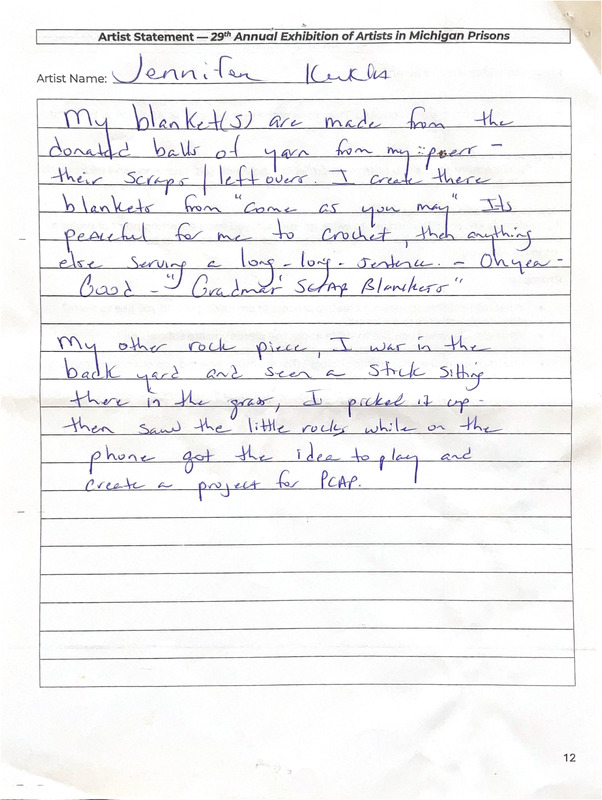 Artist Statement — 29th Annual Exhibition of Artists in Michigan Prisons
Artist Name: Jennifer
My blanket(s) are made from the
donated balls of yarn from my peers -
their scraps / left overs. I create these
blankets from "come as you may" Its
peaceful for me to crochet, then anything
else serving a long - long - sentence. - Oh yea -
Good - "Gradmas Scrap Blankets"
My other rock piece, I was in the
back yard and seen a stick sitting
there in the grass, I picked it up -
then saw the little rocks while on the
phone got the idea to play and
create a project for PCAP.
12